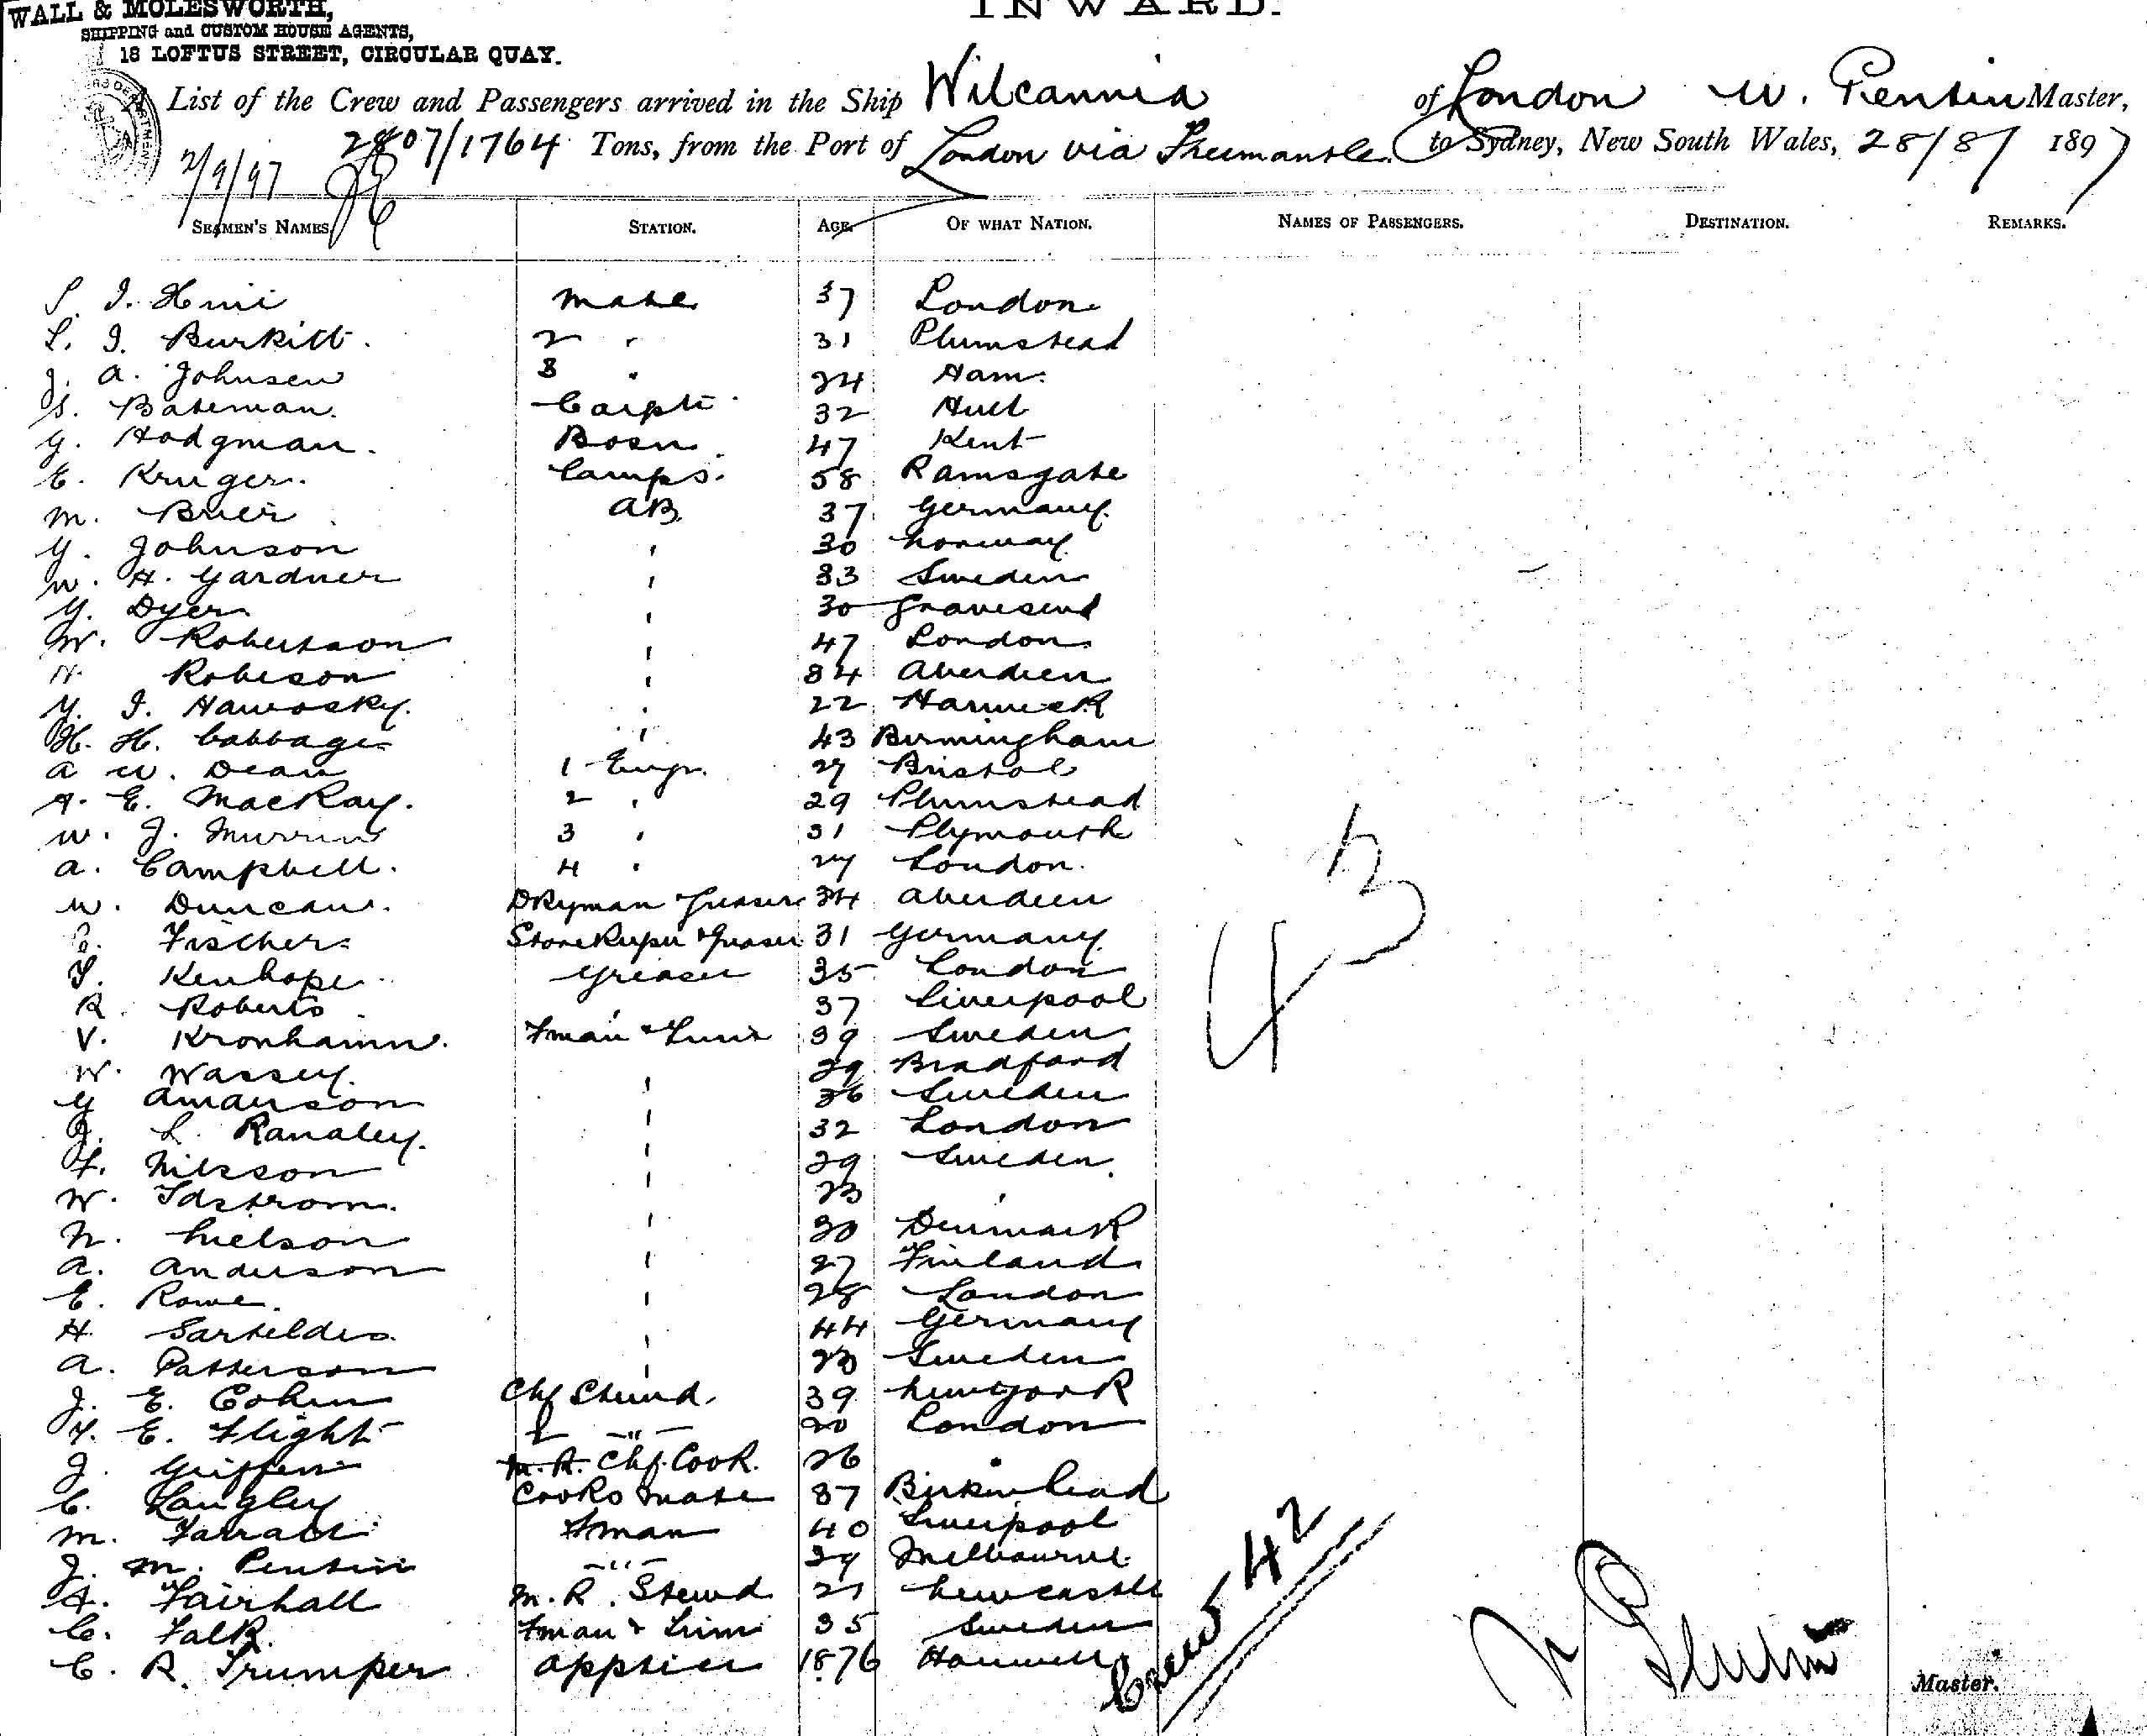 INWARD.
WALL & MOLESWORTH,
SHIPPING and CUSTOM HOUSE AGENTS,
18 LOFTUS STREET, CIRCULAR QUAY.
A List of the Crew and Passengers arrived in the Ship Wilcannia of London W. Pentin Master,
2807/1764 Tons, from the Port of London via Freemantle to Sydney, New South Wales, 28/8/ 1897
2/9/97
SEAMEN'S NAMES. STATION. AGE. OF WHAT NATION. NAMES OF PASSENGERS. DESTINATION. REMARKS.
mate 37 London
L. J. Burkitt. 2 " 31 Plumstead
J. A. Johnsen 3 " 24 Ham.
S. Bateman. Carptr 32 Hull
G. Hodgman. Bosn. 47 Kent
E. Kruger. Lamps. 58 Ramsgate
M. Brier AB. 37 Germany
G. Johnson " 30 Norway
W. H. Gardner " 33 Sweden
G. Dyer " 30 Gravesend
W. Robertson " 47 London
H. Robeson " 34 Aberdeen
G. J. Hawosky. " 22 Harwick
H. H. Cabbage " 43 Birmingham
A W. Dean 1 Engr. 27 Bristol
A. E. MacKay. 2 " 29 Plumstead
W. J. Murrin 3 " 31 Plymouth
A. Campbell. 4 " 27 London.
W. Duncan. DKyman Greaser 34 Aberdeen
Fischer Storekeeper & Greaser 31 Germany
Kenhope Greaser 35 London
R. Roberts " 37 Liverpool
V. Kronhamn. Fman & Trim 39 Sweden
W. Wassey. " 29 Bradford
G Amanson " 36 Sweden
J. L. Ranaley. " 32 London
F. Nilsson " 29 Sweden
W. Idstrom. " 23 "
N. Nielson " 30 Denmark
A. Anderson " 27 Finland
E. Rowe. " 28 London
H. Sarteldes " 44 Germany
A. Patterson " 23 Sweden
J. E. Cohen Chf Stewd. 39 Newyork
F. E. Flight 2 " 20 London
J. Griffin M.R. Chf. Cook. 26 "
C. Langley Cooks mate 37 Birkenhead
M. Farrall Fman 40 Liverpool
J. M. Pentin " 29 Melbourne.
A. Fairhall M.R. Stewd 21 Newcastle
C. Falk. Fman & Trim 35 Sweden
C. R. Trumper Apptice 1876 Hanwell
43
Crew 42
W Pentin
Master.